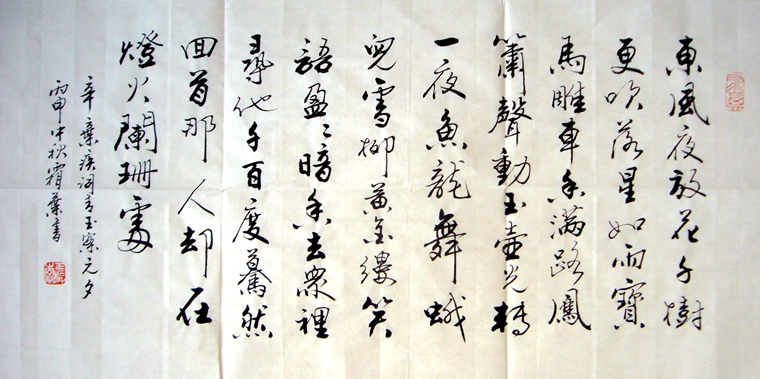 東風夜放花千樹
更吹落星如雨寶
馬雕車香滿路鳳
簫聲動玉壺光轉
一夜魚龍舞蛾
兒雪柳黃金縷笑
語盈〻暗香去眾裡
尋他千百度驀然
回首那人却在
燈火闌珊處
辛棄疾詞青玉案元夕
丙申中秋霜葉書